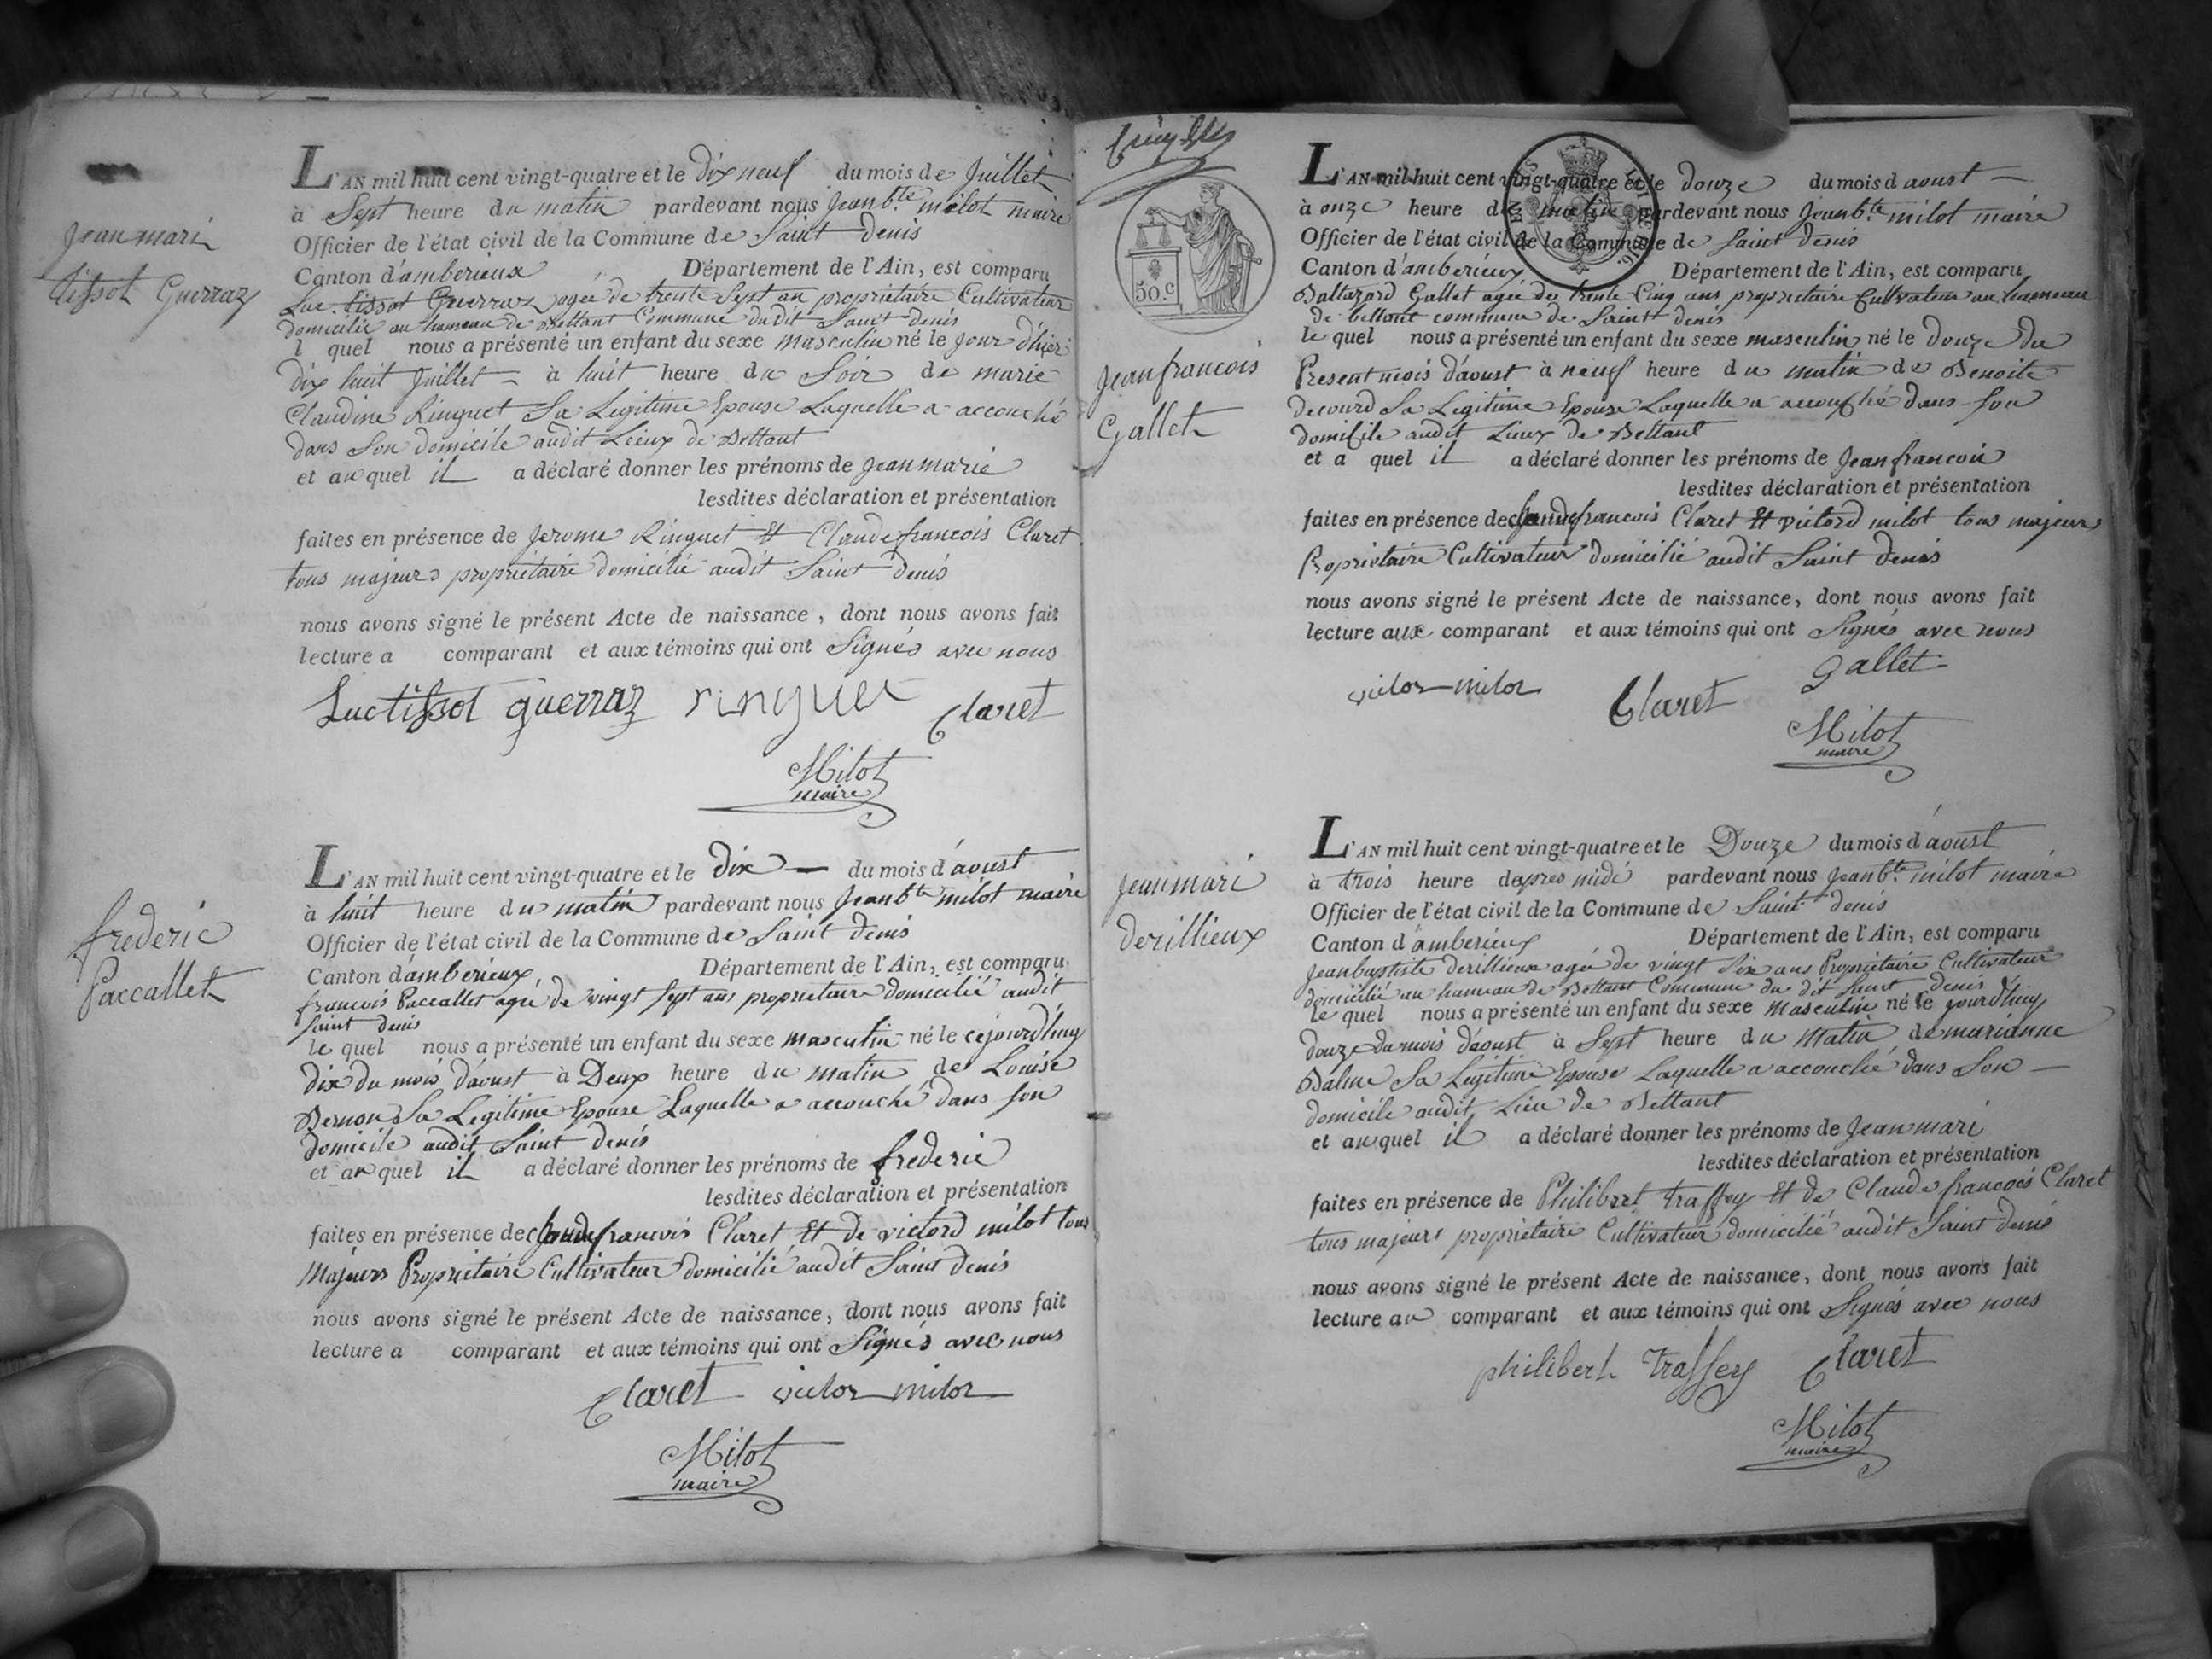 Jean mari
tissot Guerraz
L'AN mil huit cent vingt-quatre et le dix neuf du mois de Juillet
à Sept heure du matin pardevant nous Jean bte milot maire
Officier de l'état civil de la Commune de Saint denis
Canton d'amberieux Département de l'Ain, est comparu
Luc tissot Guerraz agée de trente Sept an proprietaire Cultivateur
domicilié au hameau de Bettant Commune du dit Saint denis
l quel nous a présenté un enfant du sexe masculin né le jour d'hier
dix huit Juillet à huit heure du Soir de marie
Claudine Ringuet Sa Legitime Epouse Laquelle a accouché
dans Son domicile audit Lieux de Bettant
et au quel il a déclaré donner les prénoms de Jean marie
lesdites déclaration et présentation
faites en présence de Jerome Ringuet Et Claude francois Claret
tous majeurs propriétaire domicilié audit Saint denis
nous avons signé le présent Acte de naissance, dont nous avons fait
lecture a comparant et aux témoins qui ont Signés avec nous
Luc tissot guerraz ringuet Claret
Milot
maire
frederic
Paccallet
L'AN mil huit cent vingt-quatre et le dix du mois d'aoust
à huit heure du matin pardevant nous Jean bte milot maire
Officier de l'état civil de la Commune de Saint denis
Canton d'amberieux Département de l'Ain, est comparu
francois Paccallet agé de vingt sept ans proprietaire domicilié audit
Saint denis
le quel nous a présenté un enfant du sexe masculin né le cejourdhuy
dix du mois d'aoust à Deux heure du matin de Louise
Bernon Sa Legitime Epouse Laquelle a accouché dans son
domicile audit Saint denis
et au quel il a déclaré donner les prénoms de frederic
lesdites déclaration et présentation
faites en présence de Claude francois Claret Et de victord milot tous
Majeurs Proprietaire Cultivateur domicilié audit Saint denis
nous avons signé le présent Acte de naissance, dont nous avons fait
lecture a comparant et aux témoins qui ont Signés avec nous
Claret victor milot
Milot
maire
50.c
Jean francois
Gallet
L'AN mil huit cent vingt-quatre et le douze du mois d aoust
à onze heure du matin pardevant nous Jean bte milot maire
Officier de l'état civil de la Commune de Saint denis
Canton d'amberieux Département de l'Ain, est comparu
Baltazard Gallet agée de trente Cinq ans proprietaire Cultivateur au hameau
de bettant commune de Saint denis
le quel nous a présenté un enfant du sexe masculin né le douze du
Present mois d'aoust à neuf heure du matin de Benoite
decourd Sa Legitime Epouse Laquelle a accouché dans son
domicile audit Lieux de Bettant
et a quel il a déclaré donner les prénoms de Jean francois
lesdites déclaration et présentation
faites en présence de Claude francois Claret Et victord milot tous majeurs
Proprietaire Cultivateur domicilié audit Saint denis
nous avons signé le présent Acte de naissance, dont nous avons fait
lecture aux comparant et aux témoins qui ont Signés avec nous
victor milot Claret Gallet
Milot
maire
Jean mari
derillieux
L'AN mil huit cent vingt-quatre et le Douze du mois d'aoust
à trois heure dapres midi pardevant nous Jean bte milot maire
Officier de l'état civil de la Commune de Saint denis
Canton d'amberieux Département de l'Ain, est comparu
Jean baptiste derillieux agé de vingt Six ans Propriétaire Cultivateur
domicilié au hameau de Bettant Commune du dit Saint denis
le quel nous a présenté un enfant du sexe masculin né le jourdhuy
douze du mois d'aoust à Sept heure du matin de marianne
Balme Sa Legitime Epouse Laquelle a accouché dans Son
domicile audit Lieu de Bettant
et au quel il a déclaré donner les prénoms de Jean mari
lesdites déclaration et présentation
faites en présence de Philibert traffey Et de Claude francois Claret
tous majeurs propriétaire Cultivateur domicilié audit Saint denis
nous avons signé le présent Acte de naissance, dont nous avons fait
lecture au comparant et aux témoins qui ont Signés avec nous
philibert Traffey Claret
Milot
maire